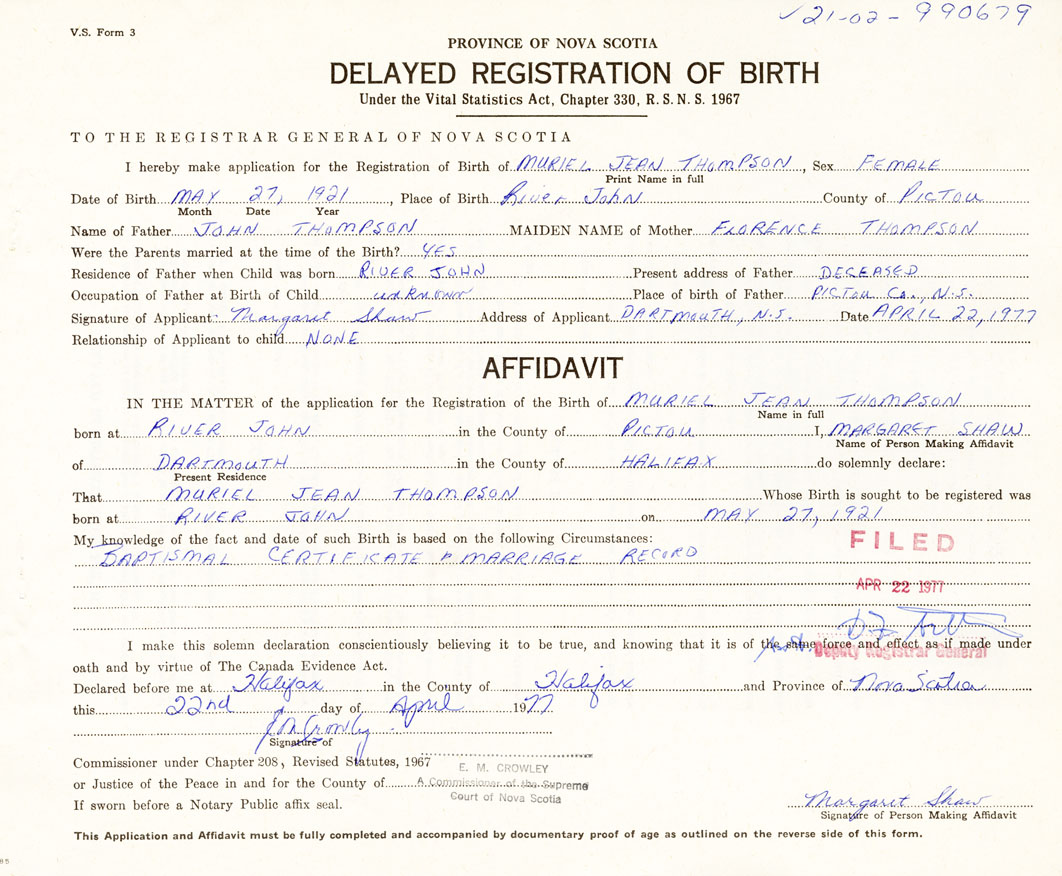 ✓ 21-02-990679
V.S. Form 3
PROVINCE OF NOVA SCOTIA
DELAYED REGISTRATION OF BIRTH
Under the Vital Statistics Act, Chapter 330, R. S. N. S. 1967
TO THE REGISTRAR GENERAL OF NOVA SCOTIA
I hereby make application for the Registration of Birth of MURIEL JEAN THOMPSON, Sex FEMALE
Print Name in full
Date of Birth MAY 27, 1921, Place of Birth River John County of PICTOU
Month Date Year
Name of Father JOHN THOMPSON MAIDEN NAME of Mother FLORENCE THOMPSON
Were the Parents married at the time of the Birth? YES
Residence of Father when Child was born RIVER JOHN Present address of Father DECEASED
Occupation of Father at Birth of Child unknown Place of birth of Father PICTOU Co., N.S.
Signature of Applicant Margaret Shaw Address of Applicant DARTMOUTH, N.S. Date APRIL 22, 1977
Relationship of Applicant to child NONE
AFFIDAVIT
IN THE MATTER of the application for the Registration of the Birth of MURIEL JEAN THOMPSON
Name in full
born at RIVER JOHN in the County of PICTOU I, MARGARET SHAW
Name of Person Making Affidavit
of DARTMOUTH in the County of HALIFAX do solemnly declare:
Present Residence
That MURIEL JEAN THOMPSON Whose Birth is sought to be registered was
born at RIVER JOHN on MAY 27, 1921
My knowledge of the fact and date of such Birth is based on the following Circumstances:
BAPTISMAL CERTIFICATE & MARRIAGE RECORD
FILED
APR 22 1977
I make this solemn declaration conscientiously believing it to be true, and knowing that it is of the same force and effect as if made under
Deputy Registrar General
oath and by virtue of The Canada Evidence Act.
Declared before me at Halifax in the County of Halifax and Province of Nova Scotia
this 22nd day of April 1977
E M Crowley
Signature of
Commissioner under Chapter 208, Revised Statutes, 1967
E. M. CROWLEY
or Justice of the Peace in and for the County of A Commissioner of the Supreme
Court of Nova Scotia
If sworn before a Notary Public affix seal.
Margaret Shaw
Signature of Person Making Affidavit
This Application and Affidavit must be fully completed and accompanied by documentary proof of age as outlined on the reverse side of this form.